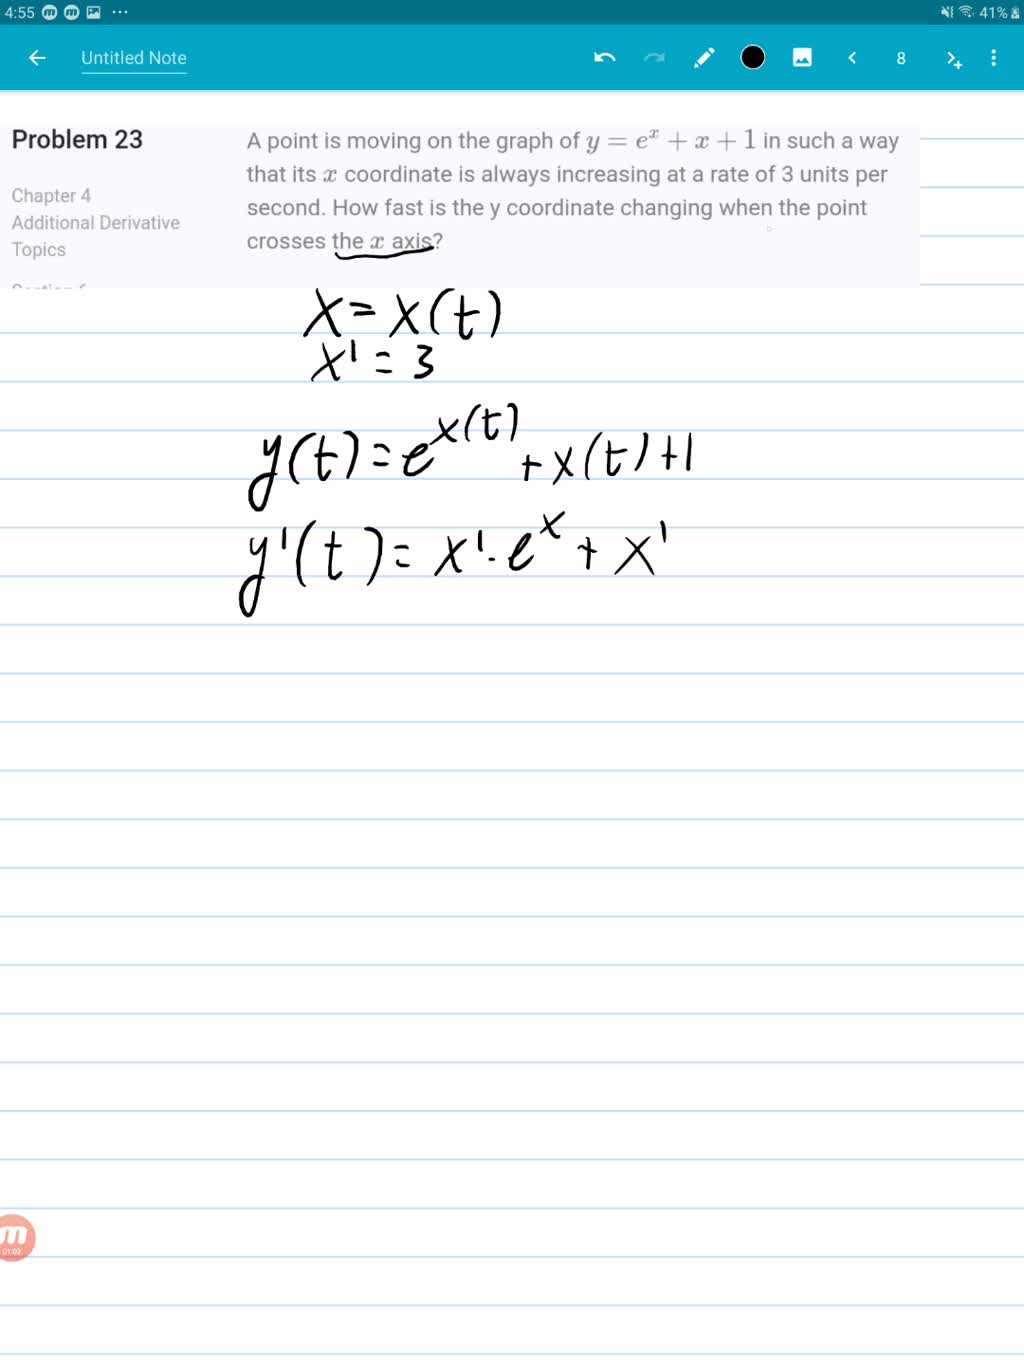 4:55 41%
Untitled Note 8
Problem 23
A point is moving on the graph of y = e^x + x + 1 in such a way
that its x coordinate is always increasing at a rate of 3 units per
second. How fast is the y coordinate changing when the point
crosses the x axis?
Chapter 4
Additional Derivative
Topics
x = x(t)
x' = 3
y(t) = e^x(t) + x(t) + 1
y'(t) = x' · e^x + x'
m
01:02